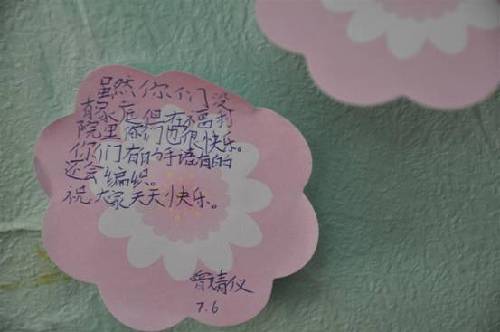 虽然你们没
有家庭,但在福利
院里你们也很快乐。
你们有的手语有的
还会编织。
祝大家天天快乐。
曾靖仪
7.6